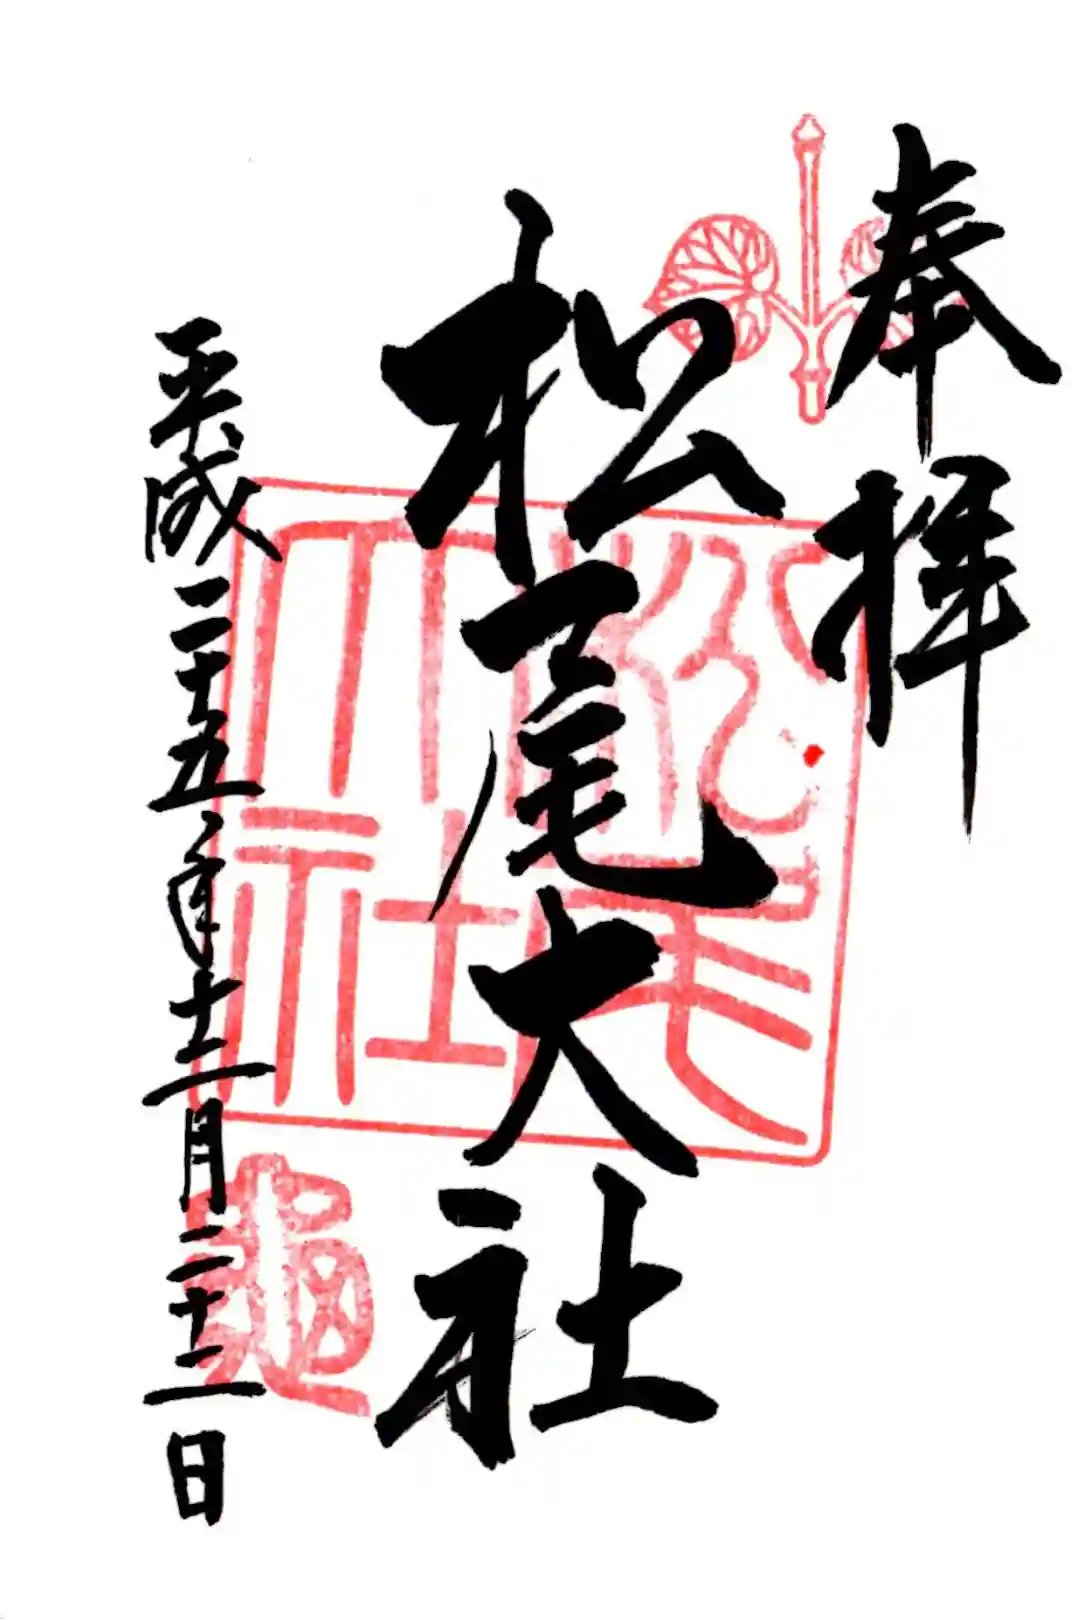 奉拝
松尾大社
平成二十五年十二月二十二日
松尾大社
亀